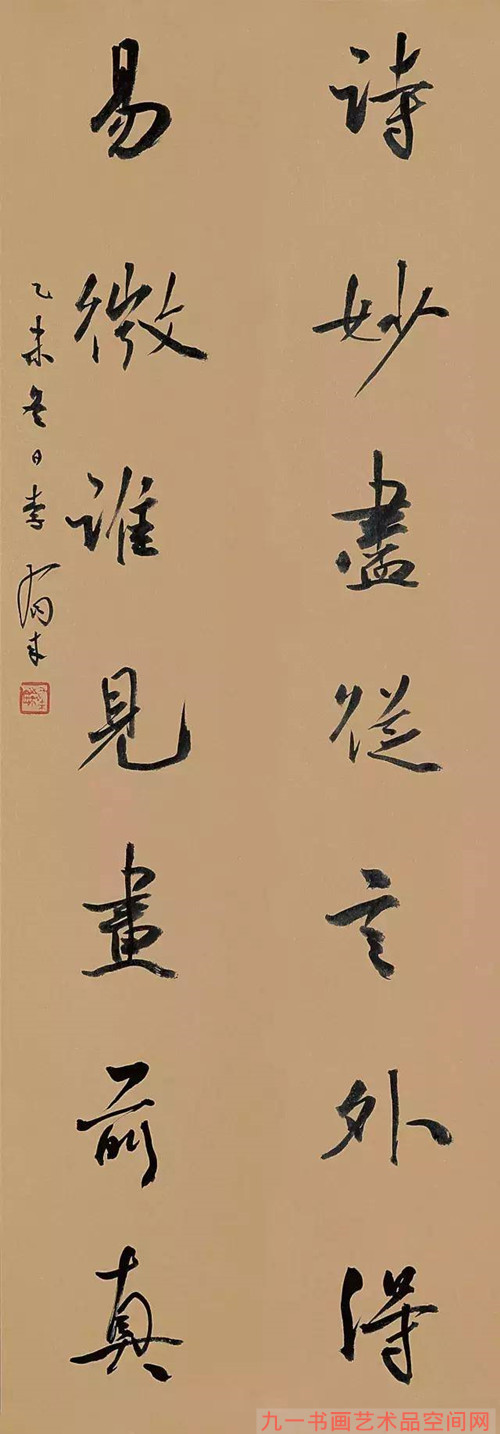 詩妙盡從言外得
易微誰見畫前真
乙未冬日李
九一书画艺术品空间网